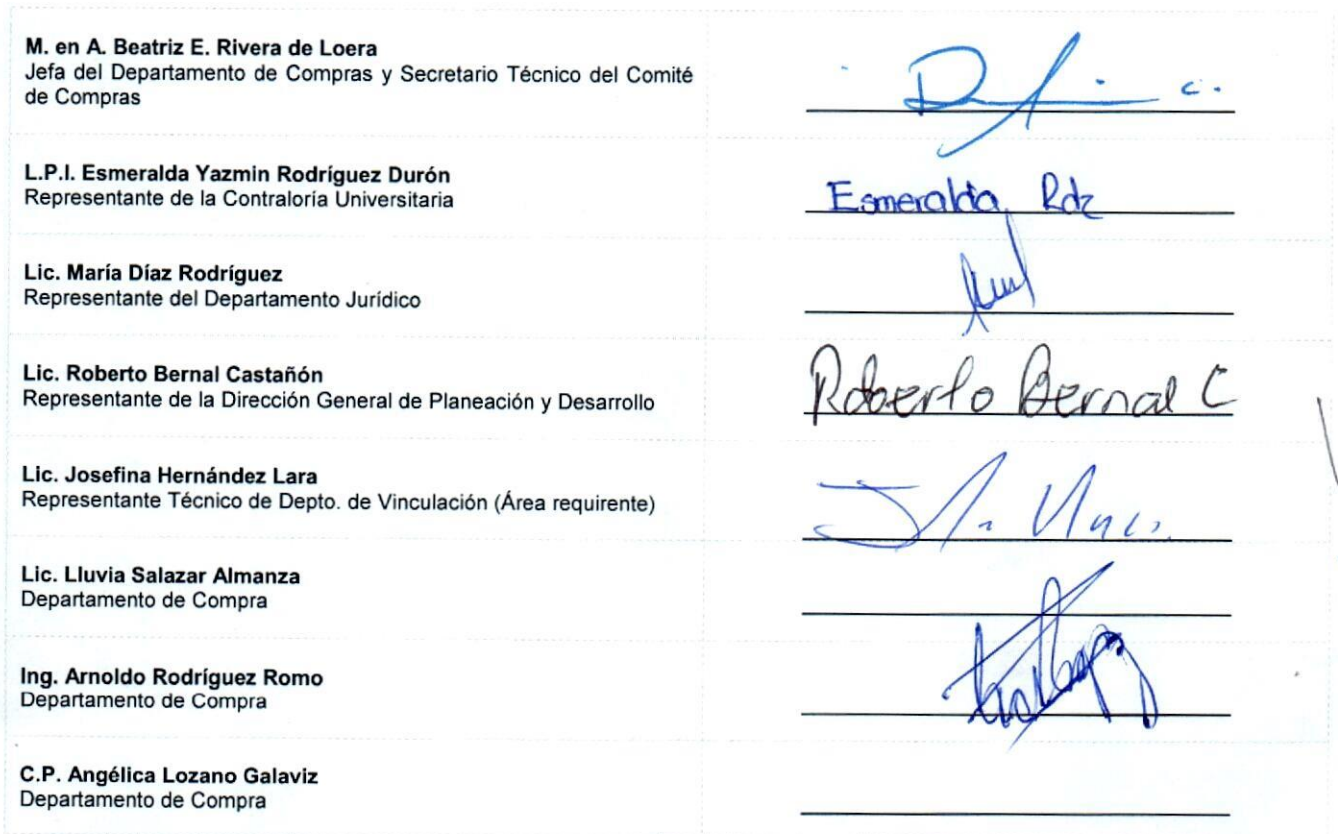 M. en A. Beatriz E. Rivera de Loera
Jefa del Departamento de Compras y Secretario Técnico del Comité
de Compras
L.P.I. Esmeralda Yazmin Rodríguez Durón
Representante de la Contraloría Universitaria
Esmeralda Rdz
Lic. María Díaz Rodríguez
Representante del Departamento Jurídico
Lic. Roberto Bernal Castañón
Representante de la Dirección General de Planeación y Desarrollo
Roberto Bernal C
Lic. Josefina Hernández Lara
Representante Técnico de Depto. de Vinculación (Área requirente)
Lic. Lluvia Salazar Almanza
Departamento de Compra
Ing. Arnoldo Rodríguez Romo
Departamento de Compra
C.P. Angélica Lozano Galaviz
Departamento de Compra